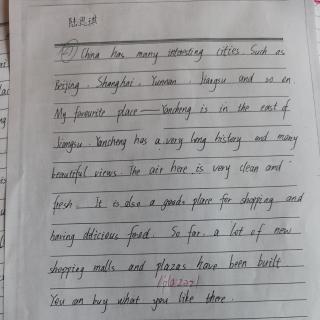 陆思琪
China has many interesting cities. Such as
Beijing, Shanghai, Yunnan, Jiangsu and so on.
My favourite place——Yancheng is in the east of
Jiangsu. Yancheng has a very long history and many
beautiful views. The air here is very clean and
fresh. It is also a goods place for shopping and
having ddicious food. So far, a lot of new
shopping malls and plazas have been built.
You an buy what you like there.